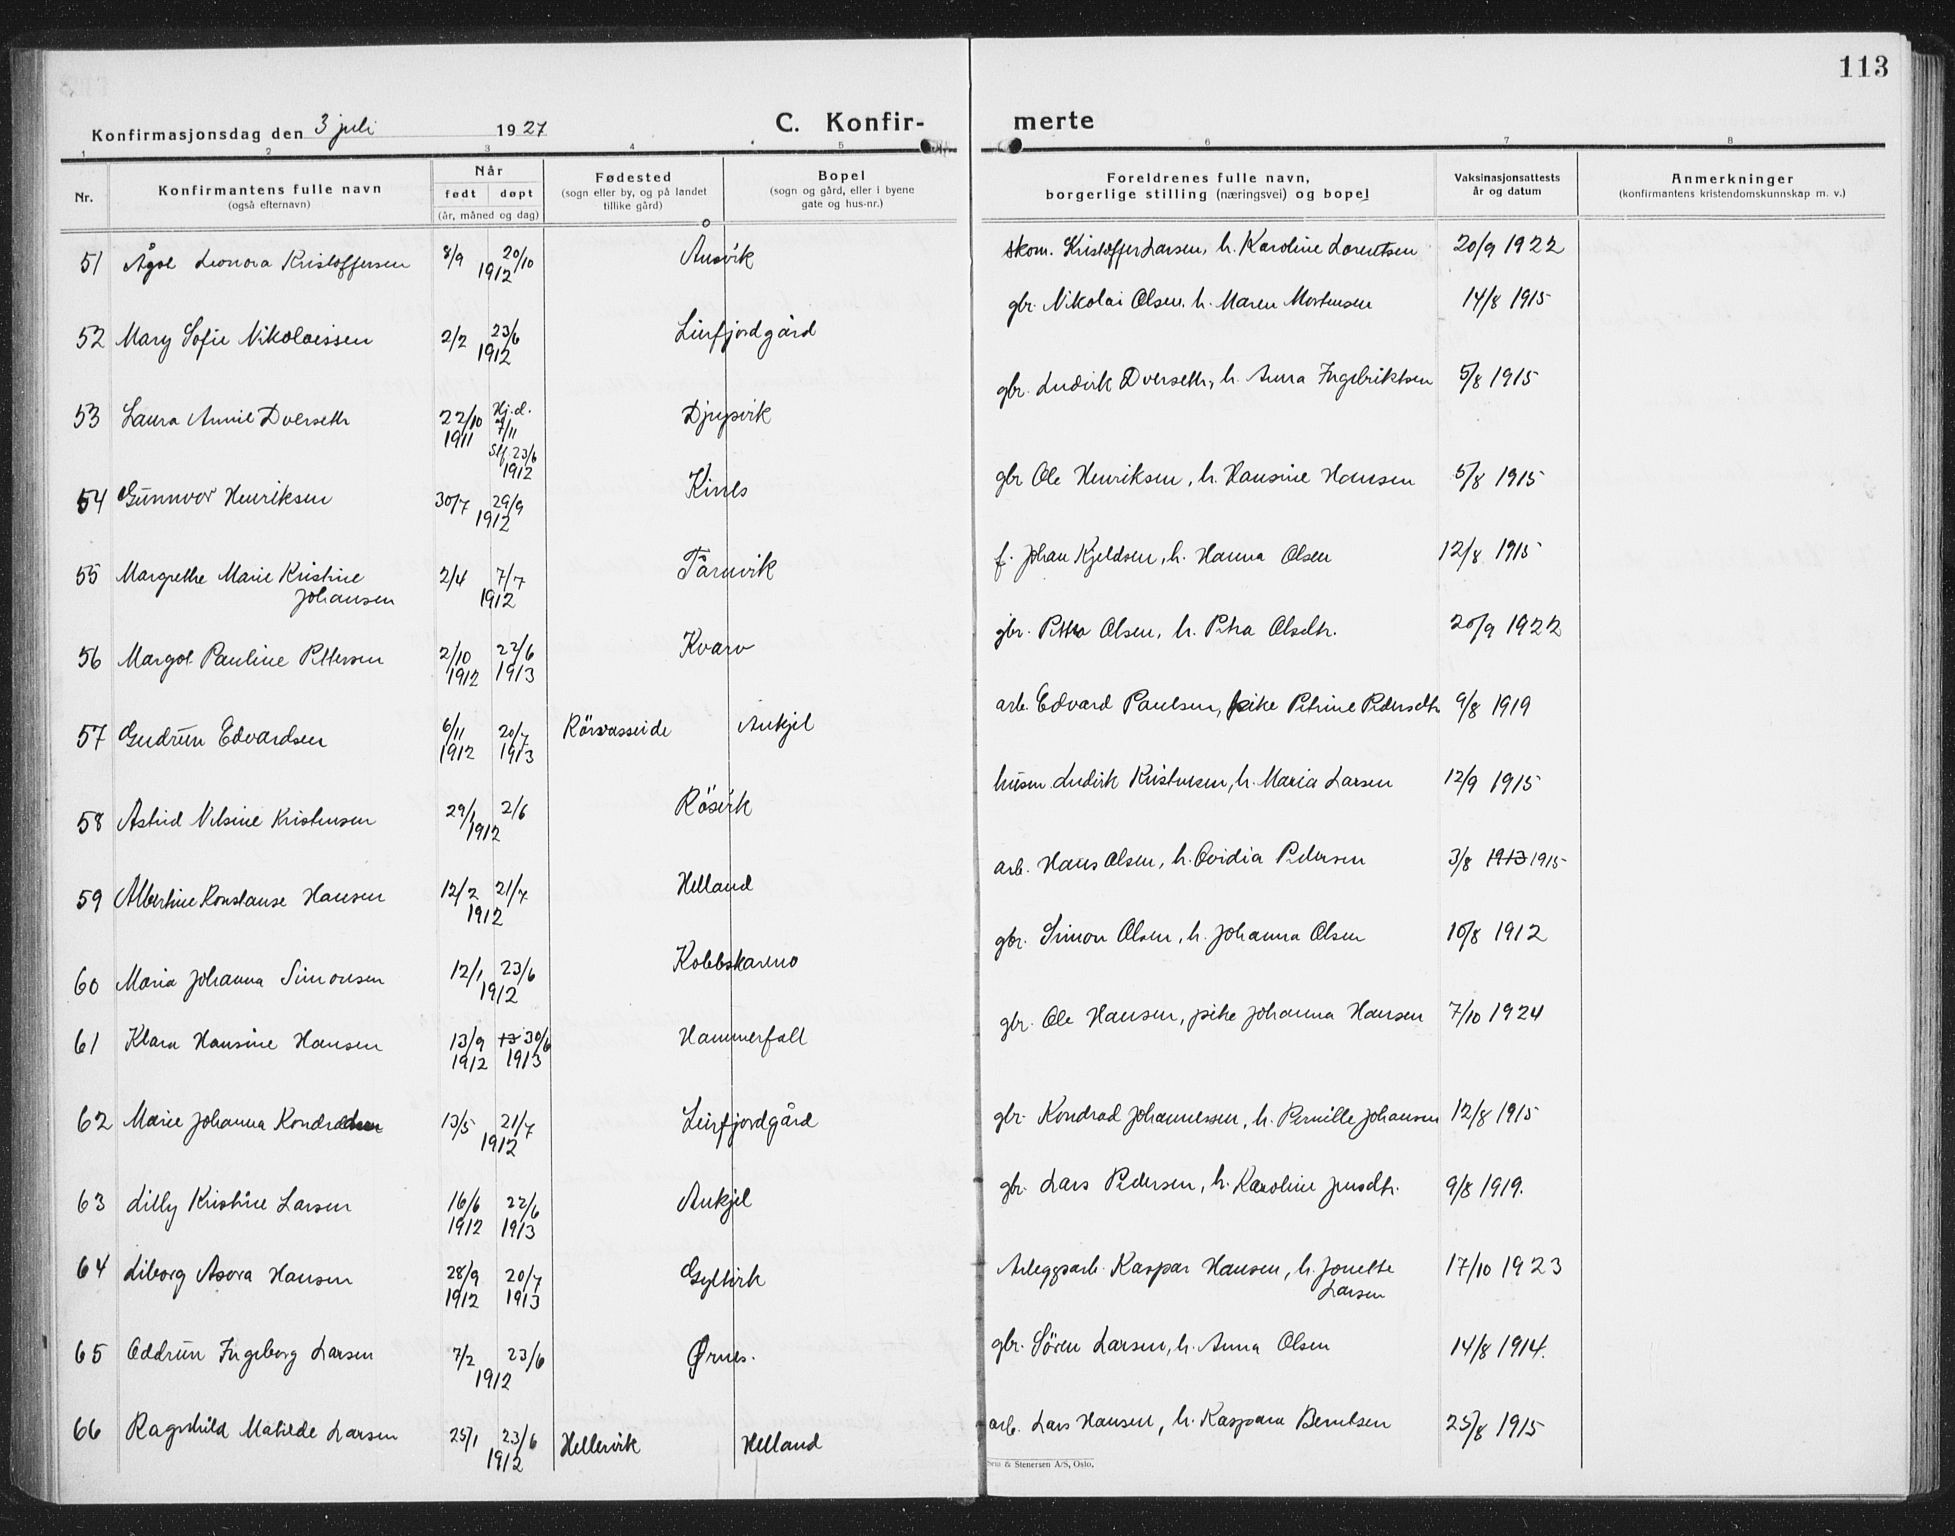 113
Konfirmasjonsdag den 3 juli 1927 C. Konfir- merte
1 2 3 4 5 6 7 8
Nr. Konfirmantens fulle navn (også efternavn) Når født døpt (år, måned og dag) Fødested (sogn eller by, og på landet tillike gård) Bopel (sogn og gård, eller i byene gate og hus-nr.) Foreldrenes fulle navn, borgerlige stilling (næringsvei) og bopel Vaksinasjonsattests år og datum Anmerkninger (konfirmantens kristendomskunnskap m. v.)
51 Ågot Leonora Kristoffersen 8/9 20/10 1912 Ånsvik skom. Kristoffer Larsen, h. Karoline Lorentsen 20/9 1922
52 Mary Sofie Nikolaissen 2/2 23/6 1912 Leirfjordgård gbr. Nikolai Olsen, h. Maren Mortensen 14/8 1915
53 Laura Annie Dverseth 22/10 1911 Hj.d. 7/11 Stf. 23/6 1912 Djupvik gbr. Ludvik Dverseth, h. Anna Ingebriktsen 5/8 1915
54 Gunnvor Henriksen 30/7 29/9 1912 Kines gbr Ole Henriksen, h. Hansine Hansen 5/8 1915
55 Margrethe Marie Kristine Johansen 2/4 7/7 1912 Tårnvik f. Johan Kjeldsen, h. Hanna Olsen 12/8 1915
56 Margot Pauline Pettersen 2/10 1912 22/6 1913 Kvarv gbr. Petter Olsen, h. Petra Olsdtr. 20/9 1922
57 Gudrun Edvardsen 6/11 1912 20/7 1913 Rörvasseide Ankjel arb. Edvard Paulsen, pike Petrine Pedersdtr 9/8 1919
58 Astrid Nilsine Kristensen 29/1 2/6 1912 Rösvik husm. Ludvik Kristensen, h. Maria Larsen 12/9 1915
59 Albertine Konstanse Hansen 12/2 21/7 1912 Helland arb. Hans Olsen, h. Ovidia Pedersen 3/8 1913 1915
60 Maria Johanna Simonsen 12/1 23/6 1912 Kobbskarmo gbr. Simon Olsen, h. Johanna Olsen 10/8 1912
61 Klara Hansine Hansen 13/9 1912 13 30/6 1913 Hammerfall gbr. Ole Hansen, pike Johanna Hansen 7/10 1924
62 Marie Johanna Kondradsen 13/5 21/7 1912 Leirfjordgård gbr. Kondrad Johannessen, h. Pernille Johansen 12/8 1915
63 Lilly Kristine Larsen 16/6 1912 22/6 1913 Ankjel gbr. Lars Pedersen, h. Karoline Jensdtr. 9/8 1919.
64 Liborg Asora Hansen 28/9 1912 20/7 1913 Gyltvik Anleggsarb. Kaspar Hansen, h. Jonette Larsen 17/10 1923
65 Oddrun Ingeborg Larsen 7/2 23/6 1912 Ørnes. gbr. Sören Larsen, h. Anna Olsen 14/8 1914.
66 Ragnhild Matilde Larsen 25/1 23/6 1912 Hellervik Helland arb. Lars Hansen, h. Kaspara Berntsen 25/8 1915
& Stenersen A/S, Oslo.